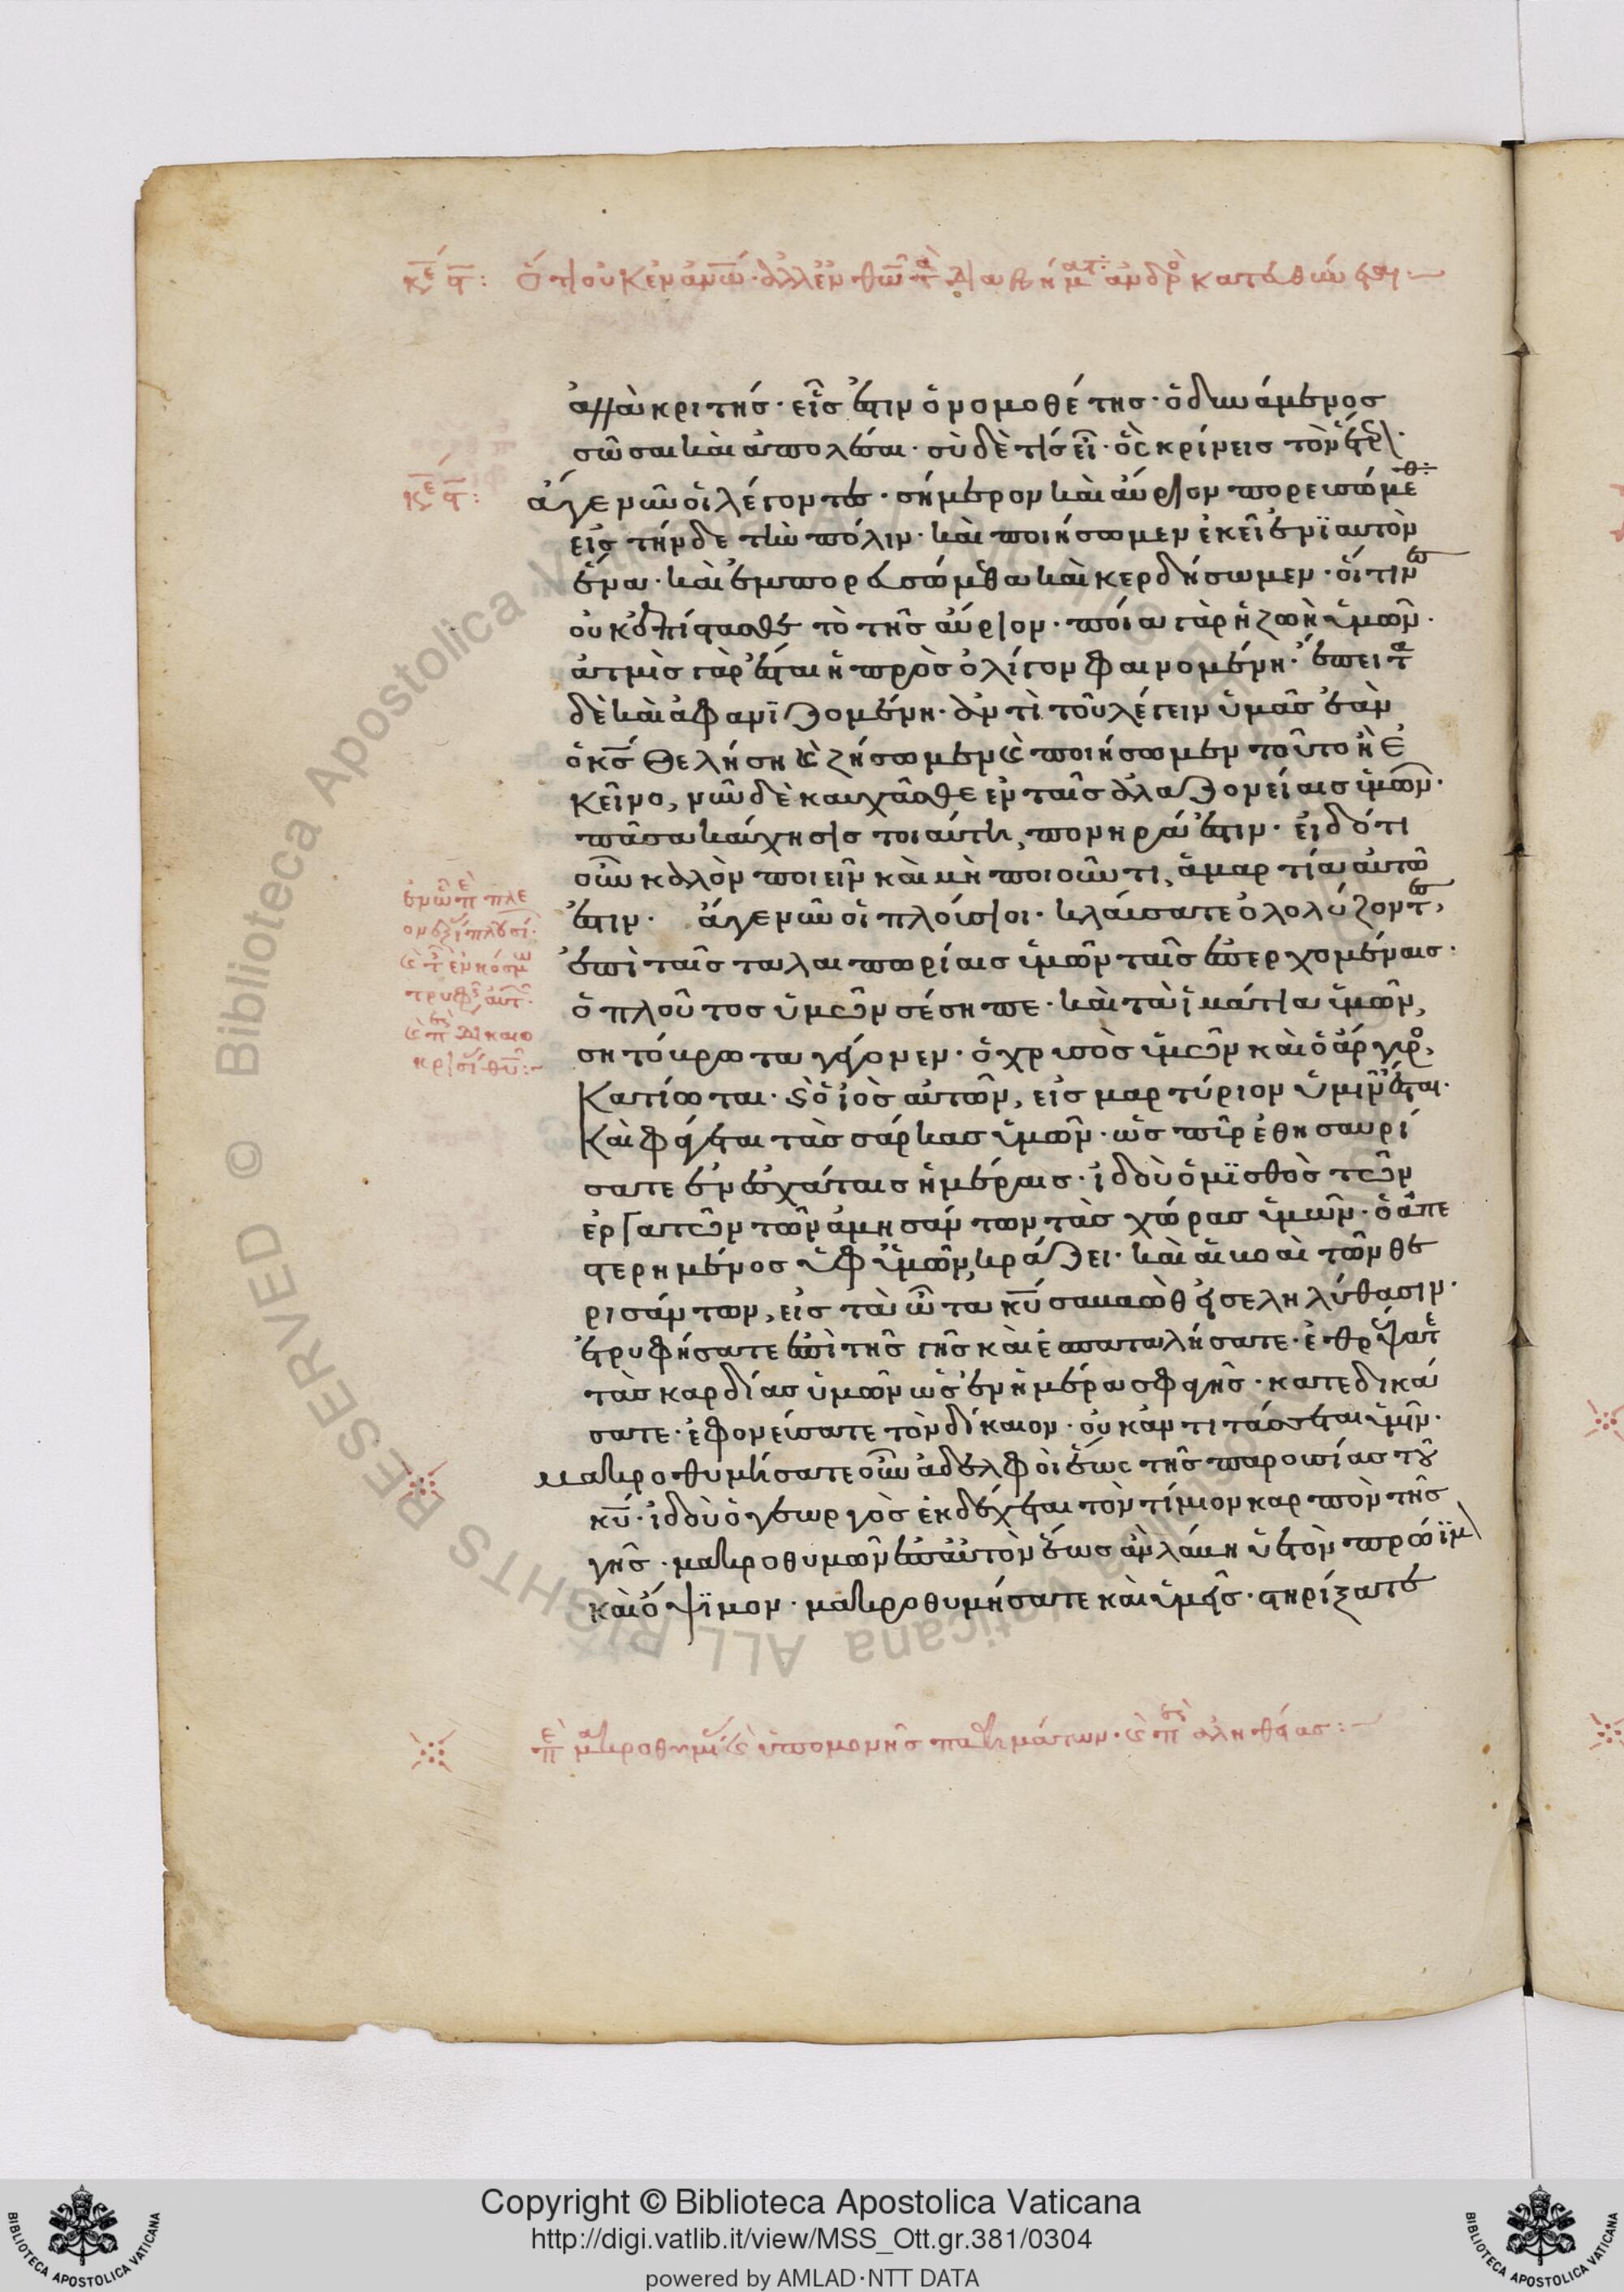 κε ϛ: ὅτι οὐκ ἐν ἀνω· ἀλλ' ἐν θω τὰ διαβήματα ἀνδρὸ κατευθύνεται:
ἀλλὰ κριτής· εἷς ἐστιν ὁ νομοθέτης· ὁ δυνάμενος
σῶσαι καὶ ἀπολέσαι· σὺ δὲ τίς εἶ· ὃς κρίνεις τὸν ἕτερ·
κε ϛ:
ἄγε νῦν οἱ λέγοντες· σήμερον καὶ αὔριον πορευσώμεθ
εἰς τήνδε τὴν πόλιν· καὶ ποιήσωμεν ἐκεῖ ἐνϊαυτὸν
ἕνα· καὶ ἐμπορευσώμεθα καὶ κερδήσωμεν· οἵτινες
οὐκ ἐπίστασθε τὸ τῆς αὔριον· ποία γὰρ ἡ ζωὴ ὑμῶν·
ἀτμὶς γὰρ ἔσται ἡ πρὸς ὀλίγον φαινομένη· ἔπειτα
δὲ καὶ ἀφανϊζομένη· ἀντὶ τοῦ λέγειν ὑμᾶς ἐὰν
ὁ κς θελήση καὶ ζήσωμεν καὶ ποιήσωμεν τοῦτο ἢ ἐ
κεῖνο, νῦν δὲ καυχᾶσθε ἐν ταῖς ἀλαζονείαις ὑμῶν·
πᾶσα καύχησις τοιαύτη, πονηρά ἐστιν· εἰδότι
οὖν καλὸν ποιεῖν καὶ μὴ ποιοῦντι, ἁμαρτία αὐτῶ
ἐστιν· ἄγε νῦν οἱ πλούσιοι· κλαύσατε ὀλολύζοντες,
ἐπὶ ταῖς ταλαιπωρίαις ὑμῶν ταῖς ἐπερχομέναις·
ὁ πλοῦτος ὑμῶν σέσηπε· καὶ τὰ ἱμάτια ὑμῶν,
σητόβρωτα γέγονεν· ὁ χρυσὸς ὑμῶν καὶ ὁ ἄργυρο,
κατίωται· καὶ ὁ ἰὸς αὐτῶν, εἰς μαρτύριον ὑμῖν ἔσται·
καὶ φάγεται τὰς σάρκας ὑμῶν· ὡς πῦρ ἐθησαυρί
σατε ἐν ἐσχάταις ἡμέραις· ἰδοὺ ὁ μϊσθὸς τῶν
ἐργατῶν τῶν ἀμησάντων τὰς χώρας ὑμῶν· ὁ ἀπε
στερημένος ἀφ ὑμῶν, κράζει· καὶ αἱ βοαὶ τῶν θε
ρισάντων, εἰς τὰ ὦτα κυ σαβαὼθ εἰσεληλύθασιν·
ἐτρυφήσατε ἐπὶ τῆς γῆς καὶ ἐσπαταλήσατε· ἐθρέψατε
τὰς καρδίας ὑμῶν ὡς ἐν ἡμέρα σφαγῆς· κατεδικά
σατε· ἐφονεύσατε τὸν δίκαιον· οὐκ ἀντιτάσσεται ὑμῖν·
μακροθυμήσατε οὖν ἀδελφοὶ ἕως τῆς παρουσίας τοῦ
κυ· ἰδοὺ ὁ γεωργὸς ἐκδέχεται τὸν τίμιον καρπὸν τῆς
γῆς· μακροθυμῶν ἐπ αὐτὸν ἕως ἂν λάβη ὑετὸν πρώϊμ
καὶ ὄψϊμον· μακροθυμήσατε καὶ ὑμεῖς· στηρίξατε
πε μακροθυμί καὶ ὑπομονῆς παθημάτων· καὶ πε ἀληθείας:
Copyright © Biblioteca Apostolica Vaticana
http://digi.vatlib.it/view/MSS_Ott.gr.381/0304
powered by AMLAD·NTT DATA
BIBLIOTECA APOSTOLICA VATICANA
BIBLIOTECA APOSTOLICA VATICANA